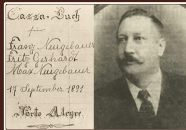 Cassa-Buch
für
Franz Neugebauer
Fritz Gerhardt
Max Neugebauer
17 September 1891
Porto Alegre